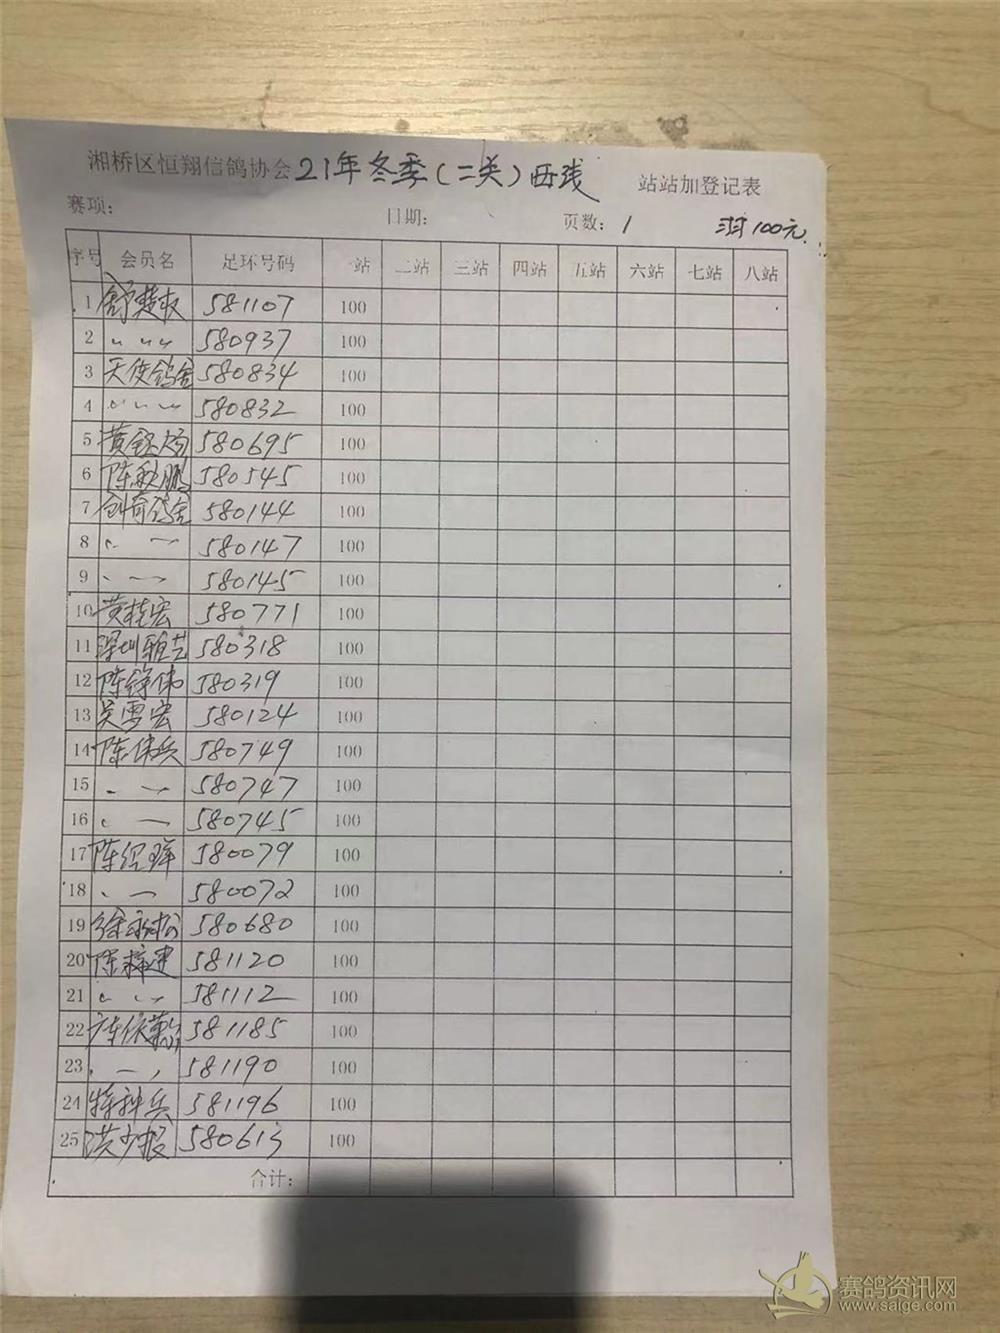 湘桥区恒翔信鸽协会 21年冬季(二关)西线 站站加登记表
赛项: 日期: 页数: 1 100元
序号 会员名 足环号码 一站 二站 三站 四站 五站 六站 七站 八站
1 舒楚权 581107 100
2 〃 〃 〃 580937 100
3 天使鸽舍 580834 100
4 〃 〃 〃 580832 100
5 580695 100
6 陈秋鹏 580545 100
7 创奇鸽舍 580144 100
8 580147 100
9 580145 100
10 黄桂宏 580771 100
11 深圳雅艺 580318 100
12 陈锦伟 580319 100
13 吴雪宏 580124 100
14 陈伟兵 580749 100
15 580747 100
16 580745 100
17 陈绍辉 580079 100
18 580072 100
19 徐永松 580680 100
20 陈梓建 581120 100
21 581112 100
22 581185 100
23 581190 100
24 特种兵 581196 100
25 洪少报 580613 100
合计:
赛鸽资讯网
www.saige.com